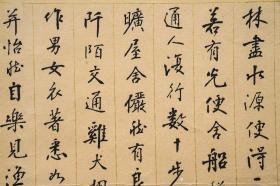 林盡水源便得一
若有光便舍船
通人復行數十步
曠屋舍儼然有良
阡陌交通雞犬相
作男女衣著悉如
并怡然自樂見漁